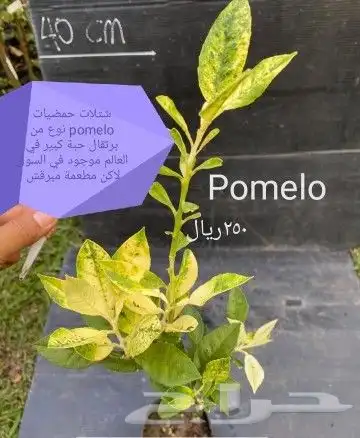 40 CM
شتلات حمضيات
pomelo نوع من
برتقال حبة كبير في
العالم موجود في السو
لاكن مطعمة ميرقش
Pomelo
٢٥٠ريال
حراج